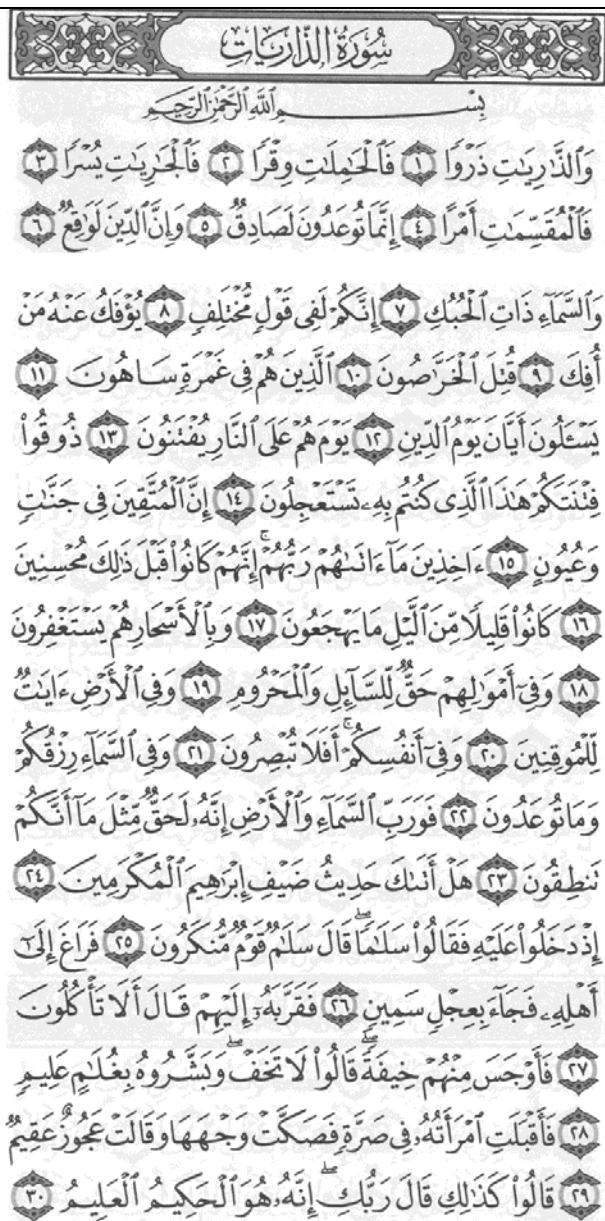 سُورَةُ الذَّارِيَاتِ
بِسْمِ اللَّهِ الرَّحْمَٰنِ الرَّحِيمِ
وَالذَّارِيَاتِ ذَرْوًا ١ فَالْحَامِلَاتِ وِقْرًا ٢ فَالْجَارِيَاتِ يُسْرًا ٣
فَالْمُقَسِّمَاتِ أَمْرًا ٤ إِنَّمَا تُوعَدُونَ لَصَادِقٌ ٥ وَإِنَّ الدِّينَ لَوَاقِعٌ ٦
وَالسَّمَاءِ ذَاتِ الْحُبُكِ ٧ إِنَّكُمْ لَفِي قَوْلٍ مُّخْتَلِفٍ ٨ يُؤْفَكُ عَنْهُ مَنْ
أُفِكَ ٩ قُتِلَ الْخَرَّاصُونَ ١٠ الَّذِينَ هُمْ فِي غَمْرَةٍ سَاهُونَ ١١
يَسْـَٔلُونَ أَيَّانَ يَوْمُ الدِّينِ ١٢ يَوْمَ هُمْ عَلَى النَّارِ يُفْتَنُونَ ١٣ ذُوقُوا۟
فِتْنَتَكُمْ هَٰذَا الَّذِي كُنتُم بِهِۦ تَسْتَعْجِلُونَ ١٤ إِنَّ الْمُتَّقِينَ فِي جَنَّٰتٍ
وَعُيُونٍ ١٥ ءَاخِذِينَ مَآ ءَاتَىٰهُمْ رَبُّهُمْ ۚ إِنَّهُمْ كَانُوا۟ قَبْلَ ذَٰلِكَ مُحْسِنِينَ
١٦ كَانُوا۟ قَلِيلًا مِّنَ الَّيْلِ مَا يَهْجَعُونَ ١٧ وَبِالْأَسْحَارِ هُمْ يَسْتَغْفِرُونَ
١٨ وَفِىٓ أَمْوَٰلِهِمْ حَقٌّ لِّلسَّآئِلِ وَالْمَحْرُومِ ١٩ وَفِي الْأَرْضِ ءَايَٰتٌ
لِّلْمُوقِنِينَ ٢٠ وَفِىٓ أَنفُسِكُمْ ۚ أَفَلَا تُبْصِرُونَ ٢١ وَفِي السَّمَآءِ رِزْقُكُمْ
وَمَا تُوعَدُونَ ٢٢ فَوَرَبِّ السَّمَآءِ وَالْأَرْضِ إِنَّهُۥ لَحَقٌّ مِّثْلَ مَآ أَنَّكُمْ
تَنطِقُونَ ٢٣ هَلْ أَتَىٰكَ حَدِيثُ ضَيْفِ إِبْرَٰهِيمَ الْمُكْرَمِينَ ٢٤
إِذْ دَخَلُوا۟ عَلَيْهِ فَقَالُوا۟ سَلَٰمًا ۖ قَالَ سَلَٰمٌ قَوْمٌ مُّنكَرُونَ ٢٥ فَرَاغَ إِلَىٰٓ
أَهْلِهِۦ فَجَآءَ بِعِجْلٍ سَمِينٍ ٢٦ فَقَرَّبَهُۥٓ إِلَيْهِمْ قَالَ أَلَا تَأْكُلُونَ
٢٧ فَأَوْجَسَ مِنْهُمْ خِيفَةً ۖ قَالُوا۟ لَا تَخَفْ ۖ وَبَشَّرُوهُ بِغُلَٰمٍ عَلِيمٍ
٢٨ فَأَقْبَلَتِ امْرَأَتُهُۥ فِي صَرَّةٍ فَصَكَّتْ وَجْهَهَا وَقَالَتْ عَجُوزٌ عَقِيمٌ
٢٩ قَالُوا۟ كَذَٰلِكِ قَالَ رَبُّكِ ۖ إِنَّهُۥ هُوَ الْحَكِيمُ الْعَلِيمُ ٣٠